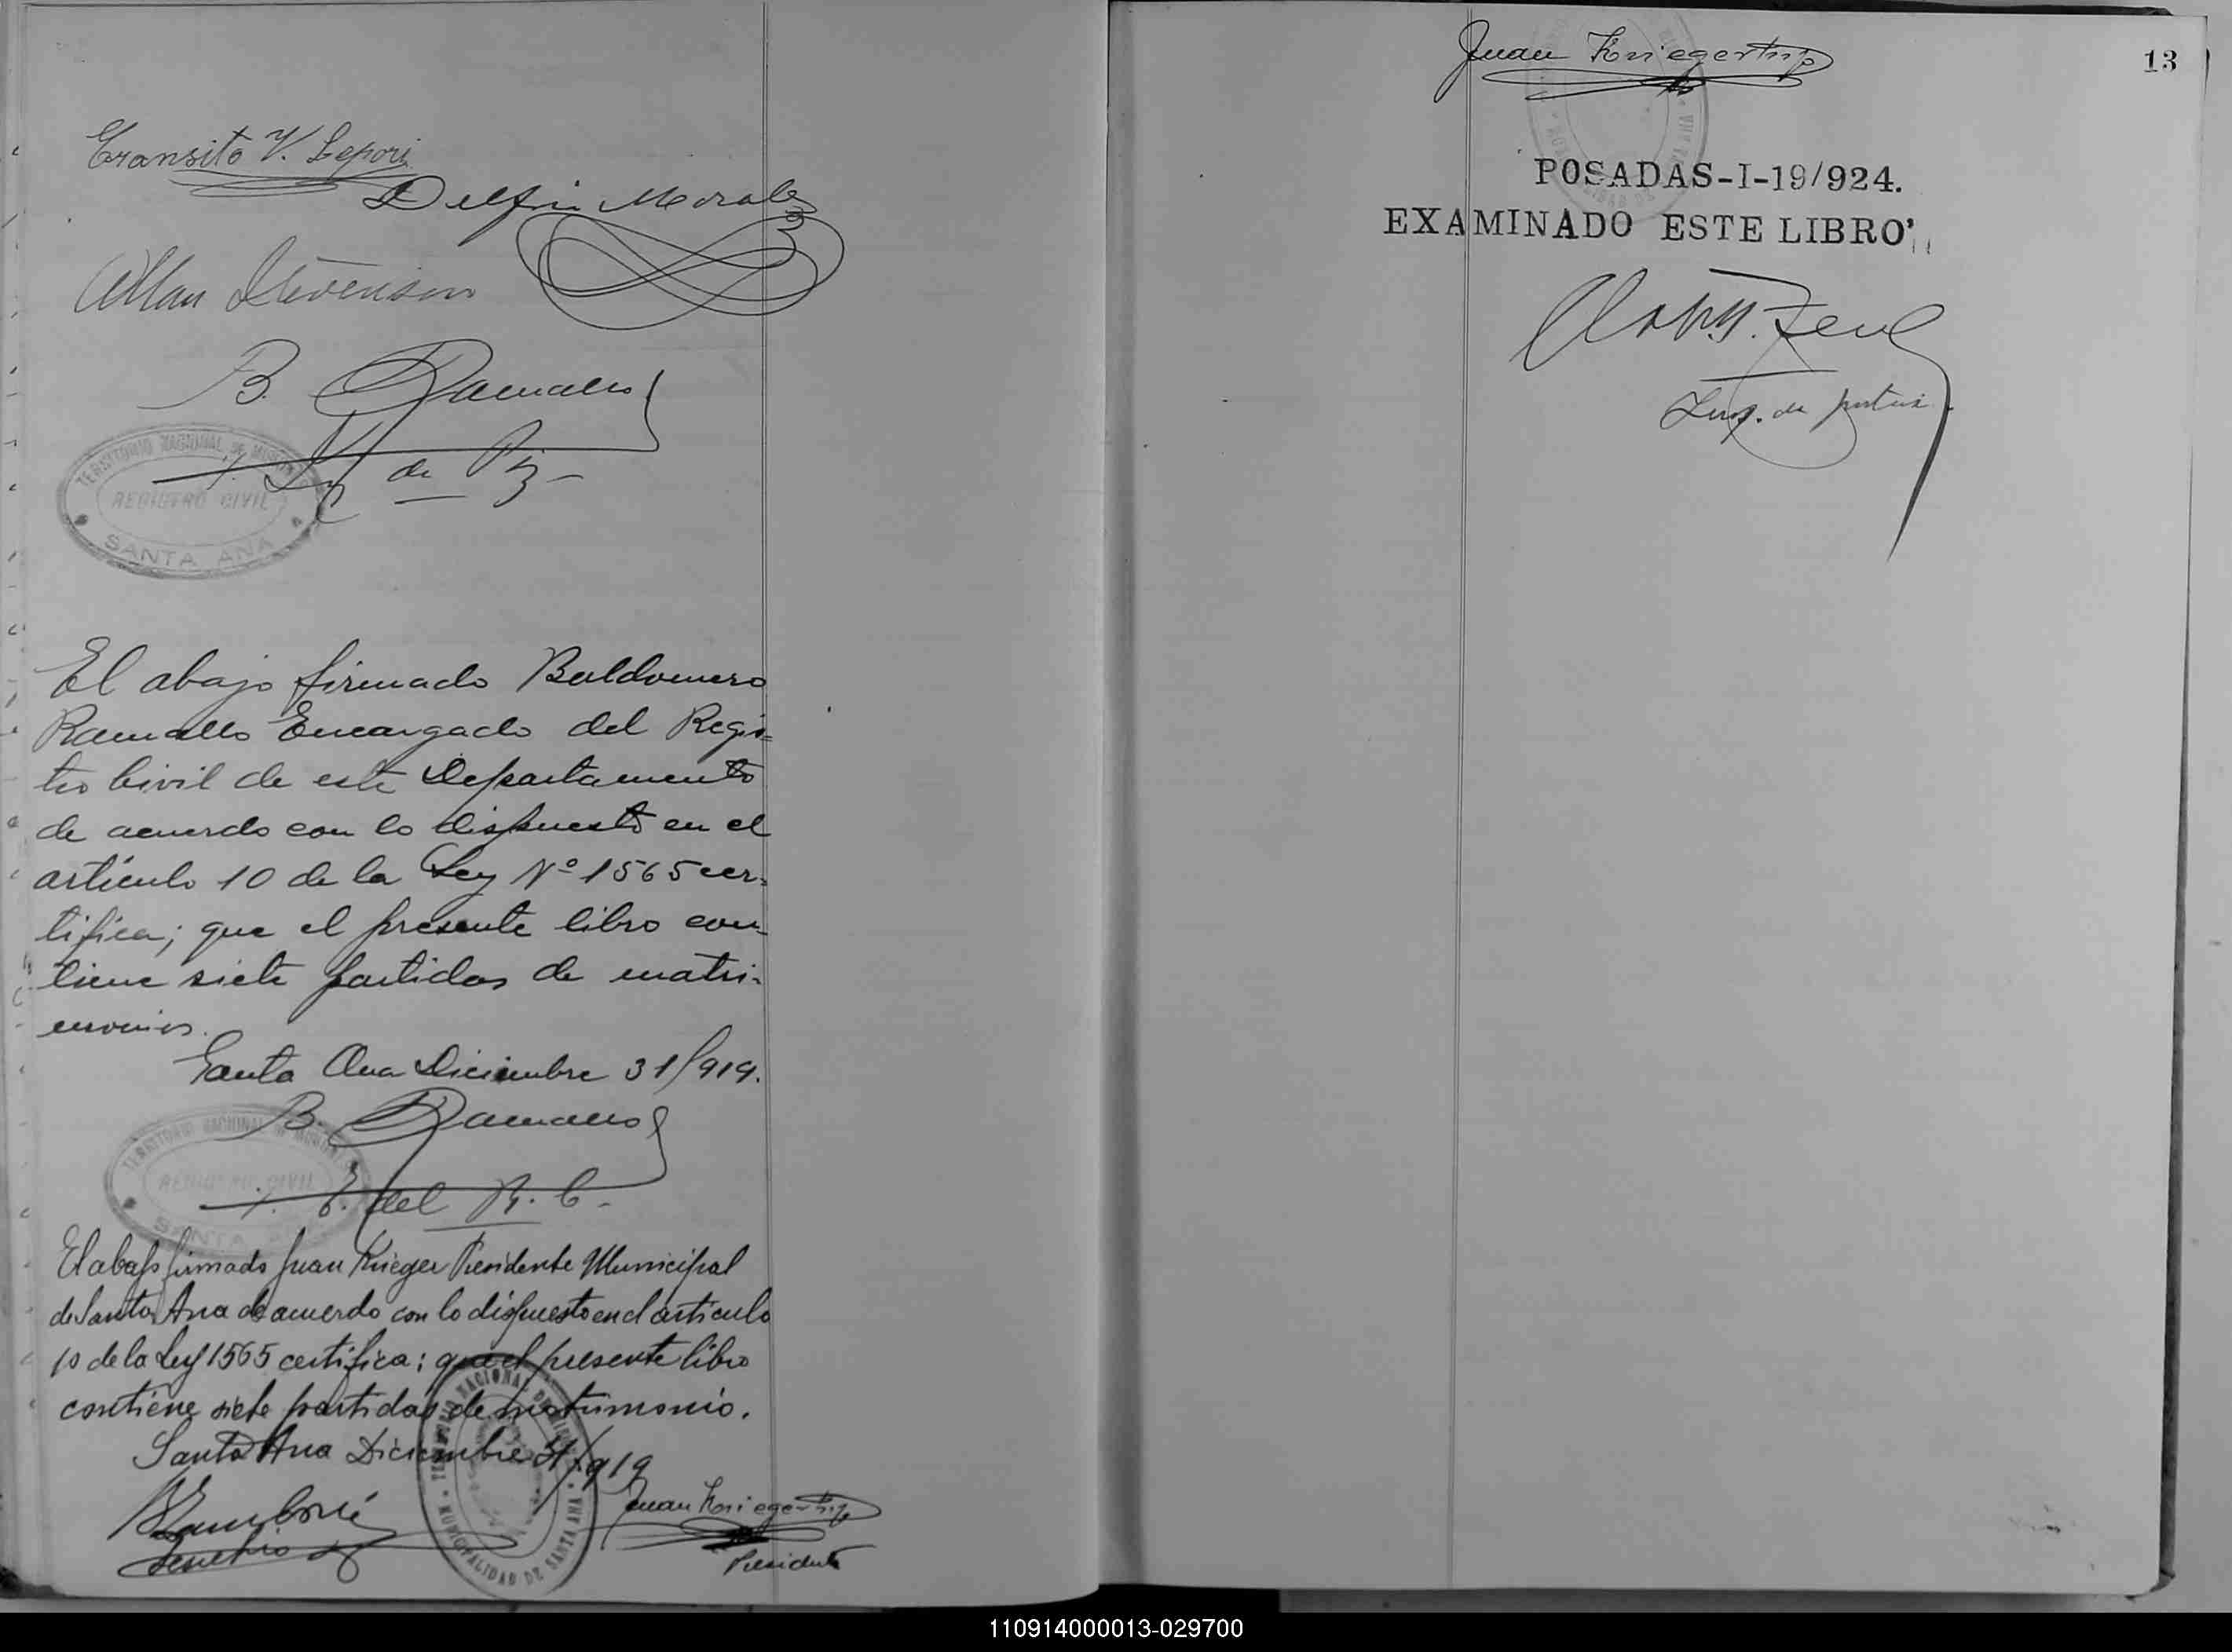 Transito V. Lepori
Delfin Morales
Allan Stevenson
B. Ramallo
J. de Paz
TERRITORIO NACIONAL DE MISIONES
REGISTRO CIVIL
SANTA ANA
El abajo firmado Baldomero
Ramallo Encargado del Regis=
tro Civil de este Departamento
de acuerdo con lo dispuesto en el
artículo 10 de la Ley Nº 1565 cer=
tifica; que el presente libro con-
tiene siete partidas de matri-
monios.
Santa Ana Diciembre 31/919.
B. Ramallo
E. del R. C.
TERRITORIO NACIONAL DE MISIONES
REGISTRO CIVIL
SANTA ANA
El abajo firmado Juan Krieger Presidente Municipal
de Santa Ana de acuerdo con lo dispuesto en el artículo
10 de la Ley 1565 certifica; que el presente libro
contiene siete partidas de matrimonio.
Santa Ana Diciembre 31/919
TERRITORIO NACIONAL DE MISIONES
MUNICIPALIDAD DE SANTA ANA
Juan Krieger hijo
Presidente
Juan Krieger hijo
13
POSADAS-I-19/924.
EXAMINADO ESTE LIBRO
110914000013-029700